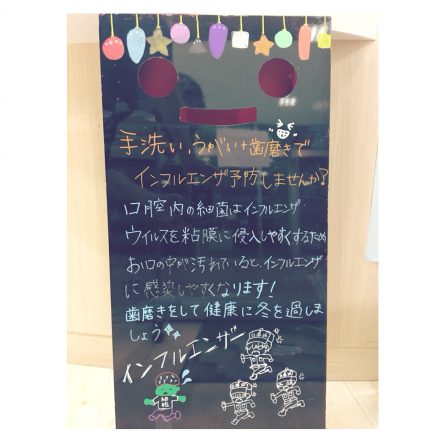 手洗い、うがい+歯磨きで
インフルエンザ予防しませんか?
口腔内の細菌はインフルエンザ
ウイルスを粘膜に侵入しやすくするため
お口の中が汚れていると、インフルエンザ
に感染しやすくなります!
歯磨きをして健康に冬を過しま
しょう
インフルエンザー